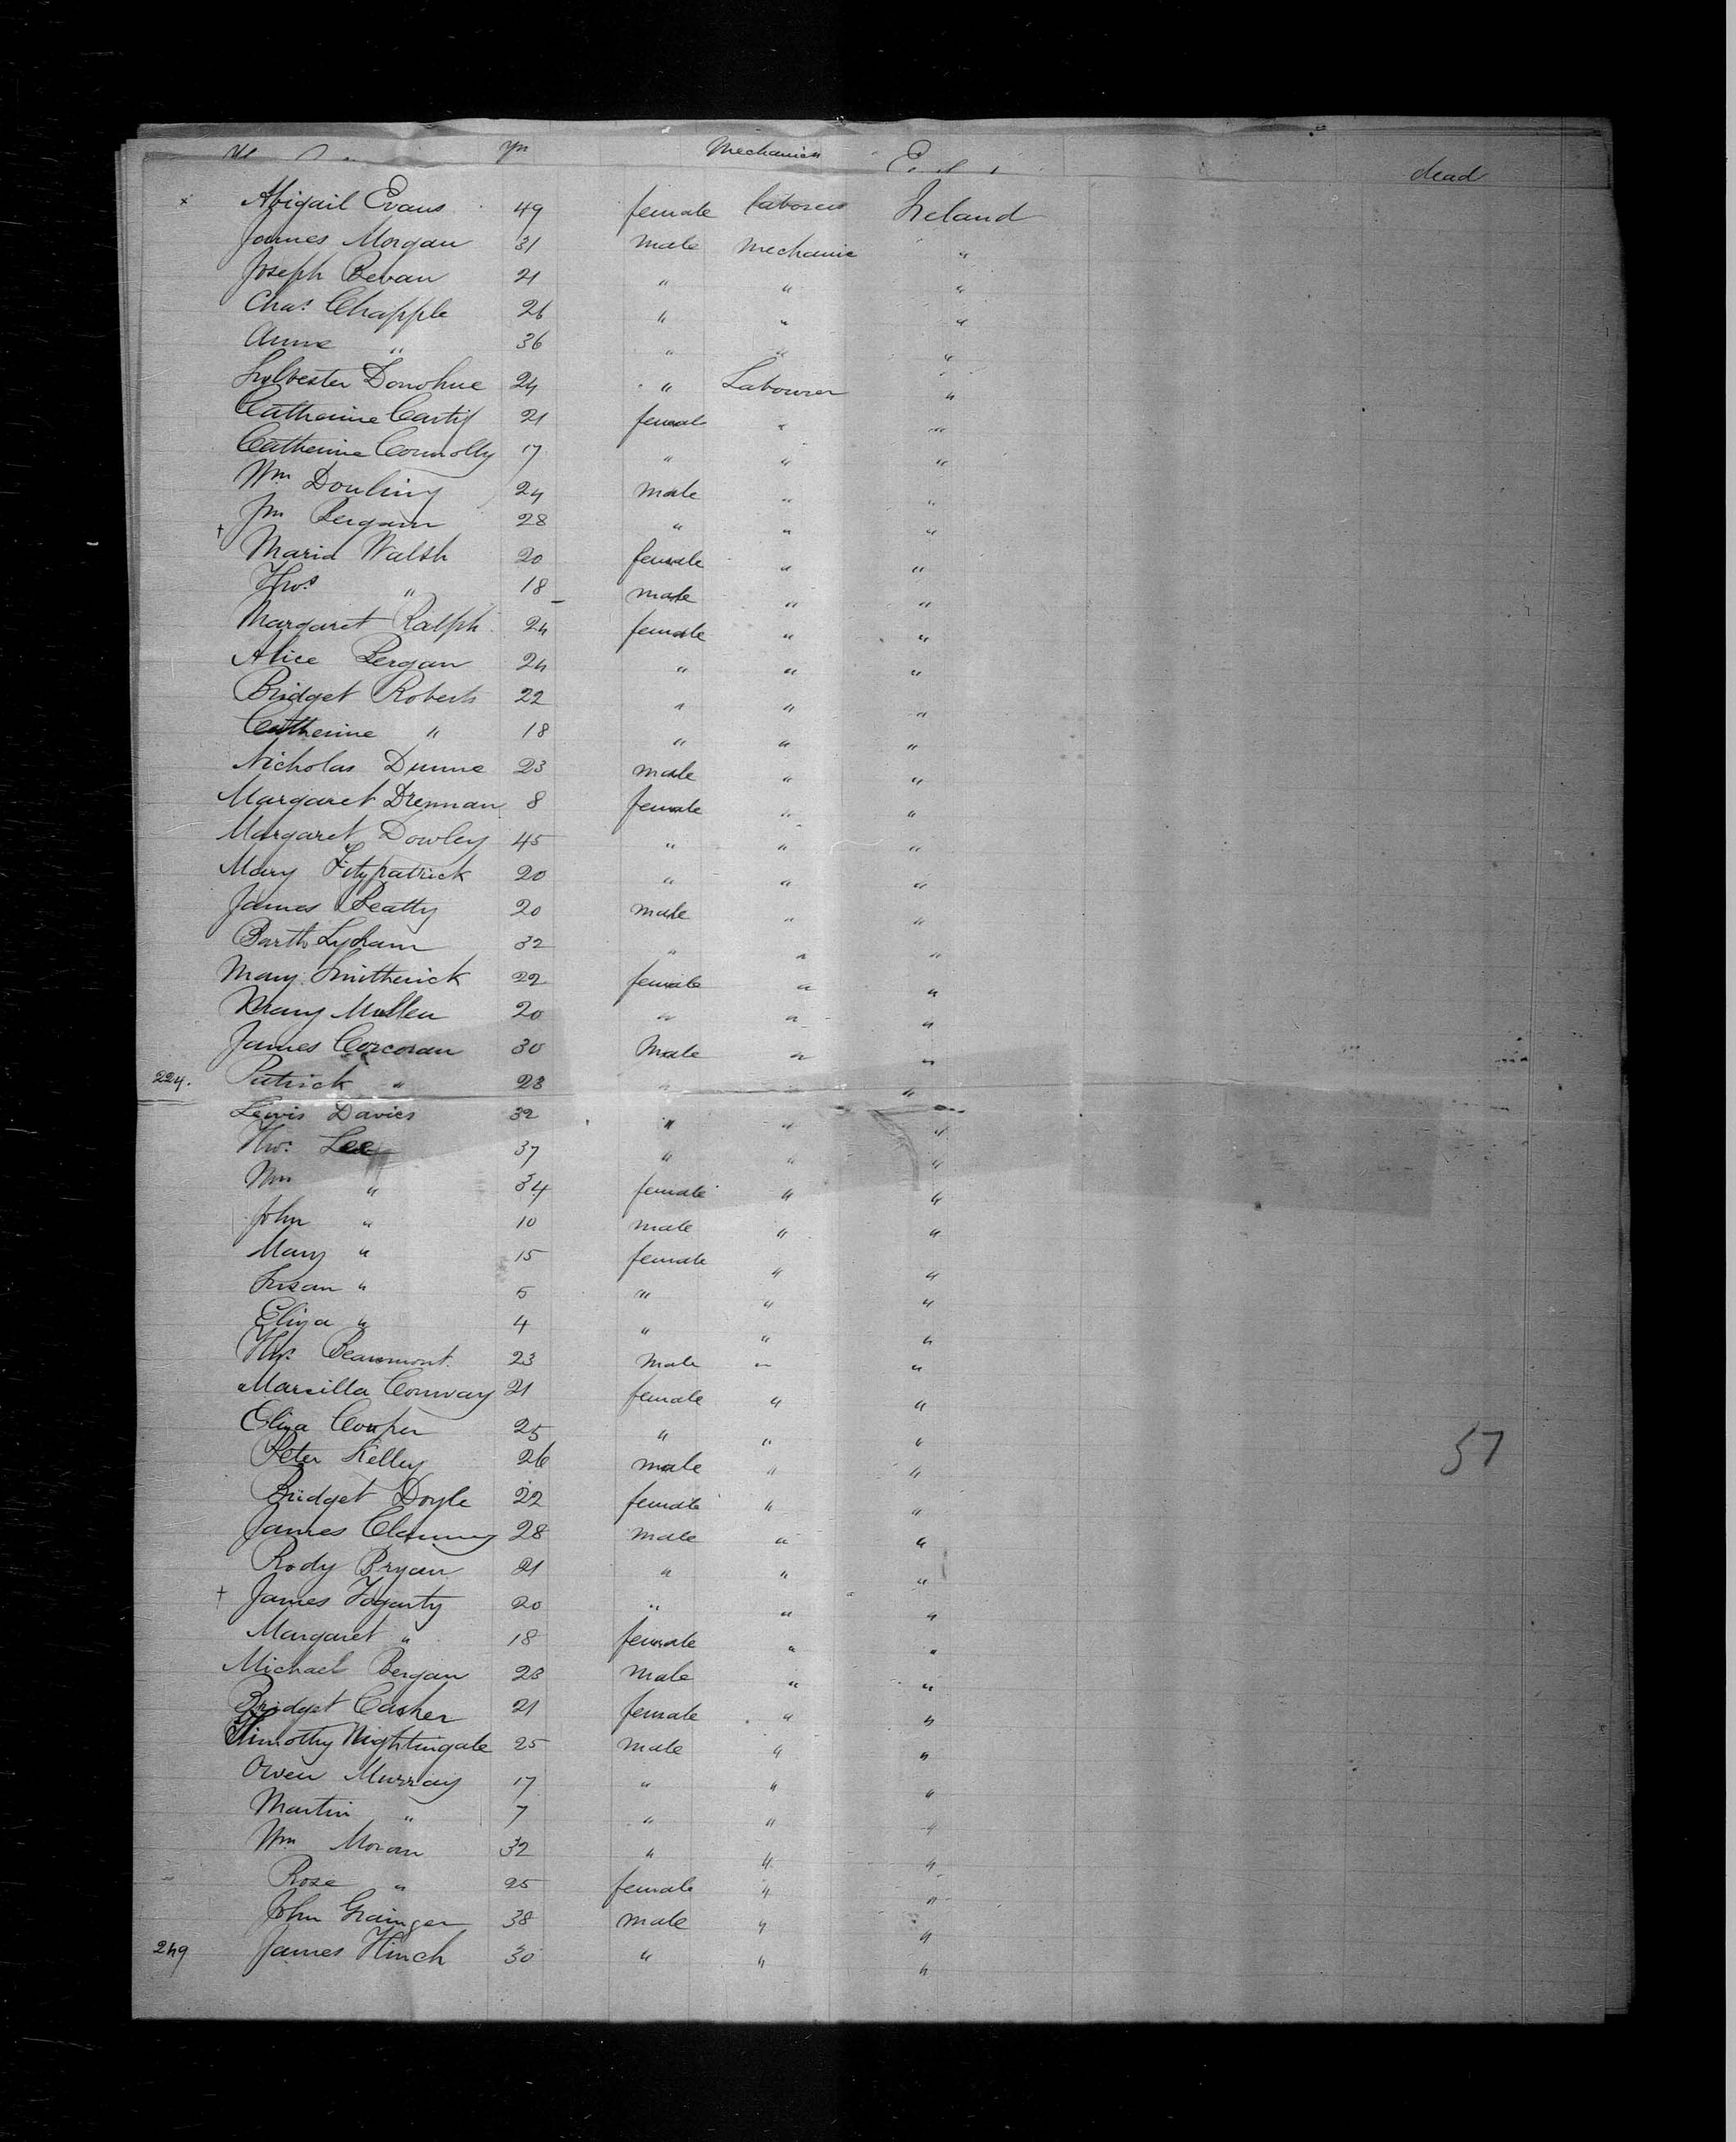 yrs Mechanics dead
x Abigail Evans 49 female laborers Ireland
James Morgan 31 male Mechanic "
Joseph Bevan 21 " " "
Chas. Chapple 26 " " "
Anne " 36 " " "
Sylvester Donohue 24 " Labourer "
Catherine Carty 21 female " "
Catherine Connolly 17 " " "
Wm Douling 24 male " "
+ Jno Bergain 28 " " "
Maria Walsh 20 female " "
Thos " 18 male " "
Margaret Ralph 24 female " "
Alice Bergan 24 " " "
Bridget Roberts 22 " " "
Catherine " 18 " " "
Nicholas Dunne 23 male " "
Margaret Drennan 8 female " "
Margaret Dowley 45 " " "
Mary Fitzpatrick 20 " " "
James Beatty 20 male " "
Barth Lydham 32 " " "
Mary Smitherick 22 female " "
Mary Mullen 20 " " "
James Corcoran 30 Male " "
224. Patrick " 28 " " "
Lewis Davies 32 " " "
Thos. Lee 37 " " "
Mrs " 34 female " "
John " 10 male " "
Mary " 15 female " "
Susan " 5 " " "
Eliza " 4 " " "
Thos. Beaumont 23 Male " "
Marcilla Conway 21 female " "
Eliza Cooper 25 " " "
57
Peter Kelley 26 male " "
Bridget Doyle 22 female " "
James Clanny 28 male " "
Rody Bryan 21 " " "
+ James Fogarty 20 " " "
Margaret " 18 female " "
Michael Bergan 23 male " "
Bridget Casher 21 female " "
Timothy Nightingale 25 male " "
Owen Murray 17 " " "
Martin " 7 " " "
Wm Moran 32 " " "
Rose " 25 female " "
John Grainger 38 male " "
249 James Hinch 30 " " "